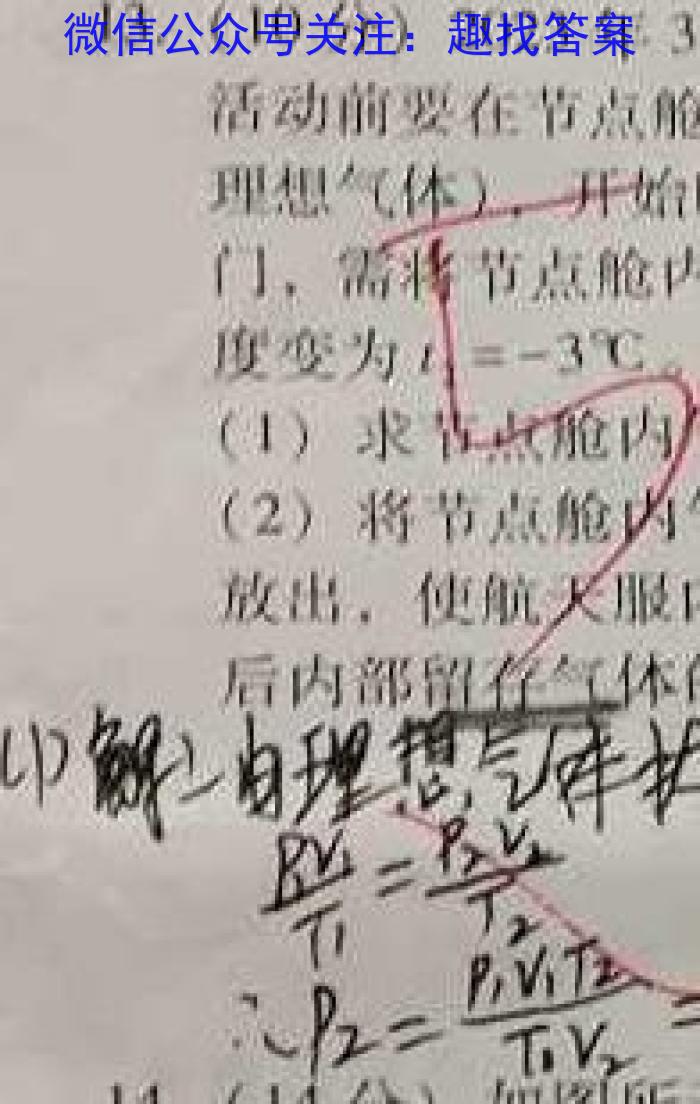 微信公众号关注：趣找答案
活动前要在节点舱
理想气体）．开始
门，需将节点舱内
度变为t₁=-3℃
（1）求节点舱内
（2）将节点舱内
放出，使航天服内
后内部留存气体的
(1)解:由理想气体状
P₁V₁/T₁=P₂V₂/T₂
∴P₂=P₁V₁T₂/T₁V₂=
14.（14分）如图所示